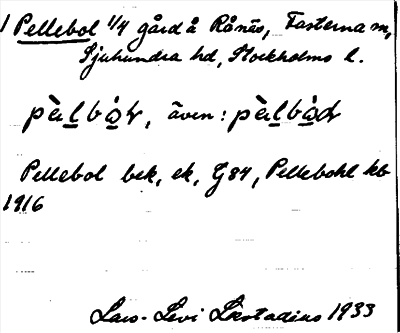 1 Pellebol 1/4 gård å Rånäs, Fasterna sn,
Sjuhundra hd, Stockholms l.
pèlbȯr, även: pèlbȯdr
Pellebol bek, ek, G84, Pellebohl kb
1916
Lars-Levi Læstadius 1933